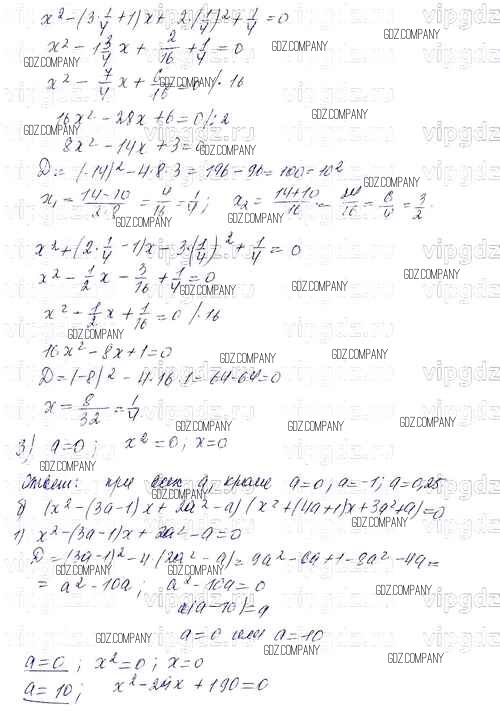 x² - (3·1/4 + 1)x + 2·(1/4)² + 1/4 = 0
x² - 1 3/4 x + 2/16 + 1/4 = 0
x² - 7/4 x + 6/16 = 0 /·16
16x² - 28x + 6 = 0 /:2
8x² - 14x + 3 = 0
D = (-14)² - 4·8·3 = 196 - 96 = 100 = 10²
x₁ = (14-10)/(2·8) = 4/16 = 1/4; x₂ = (14+10)/16 = 24/16 = 6/4 = 3/2
x² + (2·1/4 - 1)x - 3·(1/4)² + 1/4 = 0
x² - 1/2 x - 3/16 + 1/4 = 0
x² - 1/2 x + 1/16 = 0 /·16
16x² - 8x + 1 = 0
D = (-8)² - 4·16·1 = 64 - 64 = 0
x = 8/32 = 1/4
3) a=0; x²=0; x=0
Ответ: при всех a, кроме a=0; a=-1; a=0,25
б) (x² - (3a-1)x + 2a² - a)(x² + (4a+1)x + 3a² + a) = 0
1) x² - (3a-1)x + 2a² - a = 0
D = (3a-1)² - 4(2a² - a) = 9a² - 6a + 1 - 8a² - 4a =
= a² - 10a; a² - 10a = 0
a(a-10) = a
a=0 или a=-10
a=0; x²=0; x=0
a=10; x² - 29x + 190 = 0
GDZ.COMPANY
vipgdz.ru